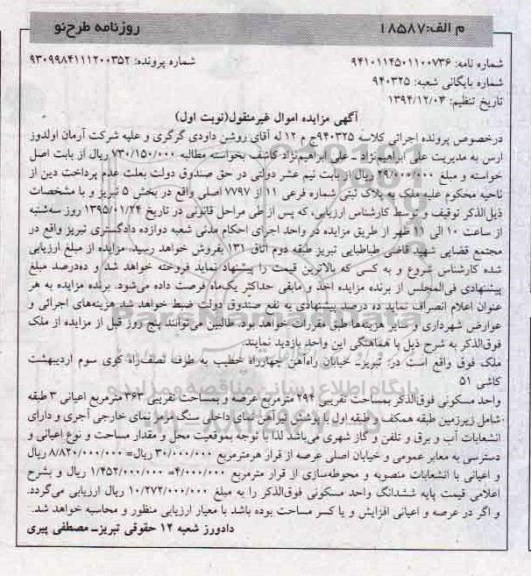 م الف:۱۸۵۸۷ روزنامه طرح‌نو
شماره نامه: ۹۴۱۰۱۱۴۵۰۱۱۰۰۷۳۶ شماره پرونده: ۹۳۰۹۹۸۴۱۱۱۲۰۰۳۵۲
شماره بایگانی شعبه: ۹۴۰۳۲۵
تاریخ تنظیم: ۱۳۹۴/۱۲/۰۴
آگهی مزایده اموال غیرمنقول(نوبت اول)
درخصوص پرونده اجرائی کلاسه ۹۴۰۳۲۵ج م ۱۲ له آقای روشن داودی گرگری و علیه شرکت آرمان اولدوز
ارس به مدیریت علی ابراهیم‌نژاد ـ علی ابراهیم‌نژاد کاشف بخواسته مطالبه ۷۳۰/۱۵۰/۰۰۰ ریال از بابت اصل
خواسته و مبلغ ۲۹/۰۰۰/۰۰۰ ریال از بابت نیم عشر دولتی در حق صندوق دولت بعلت عدم پرداخت دین از
ناحیه محکوم علیه ملک به پلاک ثبتی شماره فرعی ۱۱ از ۷۷۹۷ اصلی واقع در بخش ۵ تبریز و با مشخصات
ذیل‌الذکر توقیف و توسط کارشناس ارزیابی، که پس از طی مراحل قانونی در تاریخ ۱۳۹۵/۰۱/۲۴ روز سه‌شنبه
از ساعت ۱۰ الی ۱۱ ظهر از طریق مزایده در واحد اجرای احکام مدنی شعبه دوازده دادگستری تبریز واقع در
مجتمع قضایی شهید قاضی طباطبایی تبریز طبقه دوم اتاق ۱۳۱ بفروش خواهد رسید. مزایده از مبلغ ارزیابی
شده کارشناس شروع و به کسی که بالاترین قیمت را پیشنهاد نماید فروخته خواهد شد و ده‌درصد مبلغ
پیشنهادی فی‌المجلس از برنده مزایده اخذ و مابقی حداکثر یک‌ماه فرصت داده می‌شود. برنده مزایده به هر
عنوان اعلام انصراف نماید ده درصد پیشنهادی به نفع صندوق دولت ضبط خواهد شد هزینه‌های اجرائی و
عوارض شهرداری و سایر هزینه‌ها طبق مقررات خواهد بود. طالبین می‌توانند پنج روز قبل از مزایده از ملک
فوق‌الذکر به شرح ذیل با هماهنگی این واحد بازدید نمایند.
ملک فوق واقع است در: تبریزـ خیابان راه‌آهن چهارراه خطیب به طرف نصف‌راه کوی سوم اردیبهشت
کاشی ۵۱
واحد مسکونی فوق‌الذکر بمساحت تقریبی ۲۹۴ مترمربع عرصه و بمساحت تقریبی ۳۶۳ مترمربع اعیانی ۳ طبقه
شامل زیرزمین طبقه همکف و طبقه اول با پوشش تیرآهن نمای داخلی سنگ مرمر نمای خارجی آجری و دارای
انشعابات آب و برق و تلفن و گاز شهری می‌باشد لذا با توجه بموقعیت محل و مقدار مساحت و نوع اعیانی و
دسترسی به معابر عمومی و خیابان اصلی عرصه از قرار هرمترمربع ۳۰/۰۰۰/۰۰۰ ریال= ۸/۸۲۰/۰۰۰/۰۰۰ ریال
و اعیانی با انشعابات منصوبه و محوطه‌سازی از قرار مترمربع ۴/۰۰۰/۰۰۰= ۱/۴۵۲/۰۰۰/۰۰۰ ریال و بشرح
اعلامی قیمت پایه ششدانگ واحد مسکونی فوق‌الذکر را به مبلغ ۱۰/۲۷۲/۰۰۰/۰۰۰ ریال ارزیابی می‌گردد.
و اگر در عرصه و اعیانی افزایش و یا کسر مساحت بوده باشد با معیار ارزیابی منظور و محاسبه خواهد شد.
دادورز شعبه ۱۲ حقوقی تبریزـ مصطفی پیری